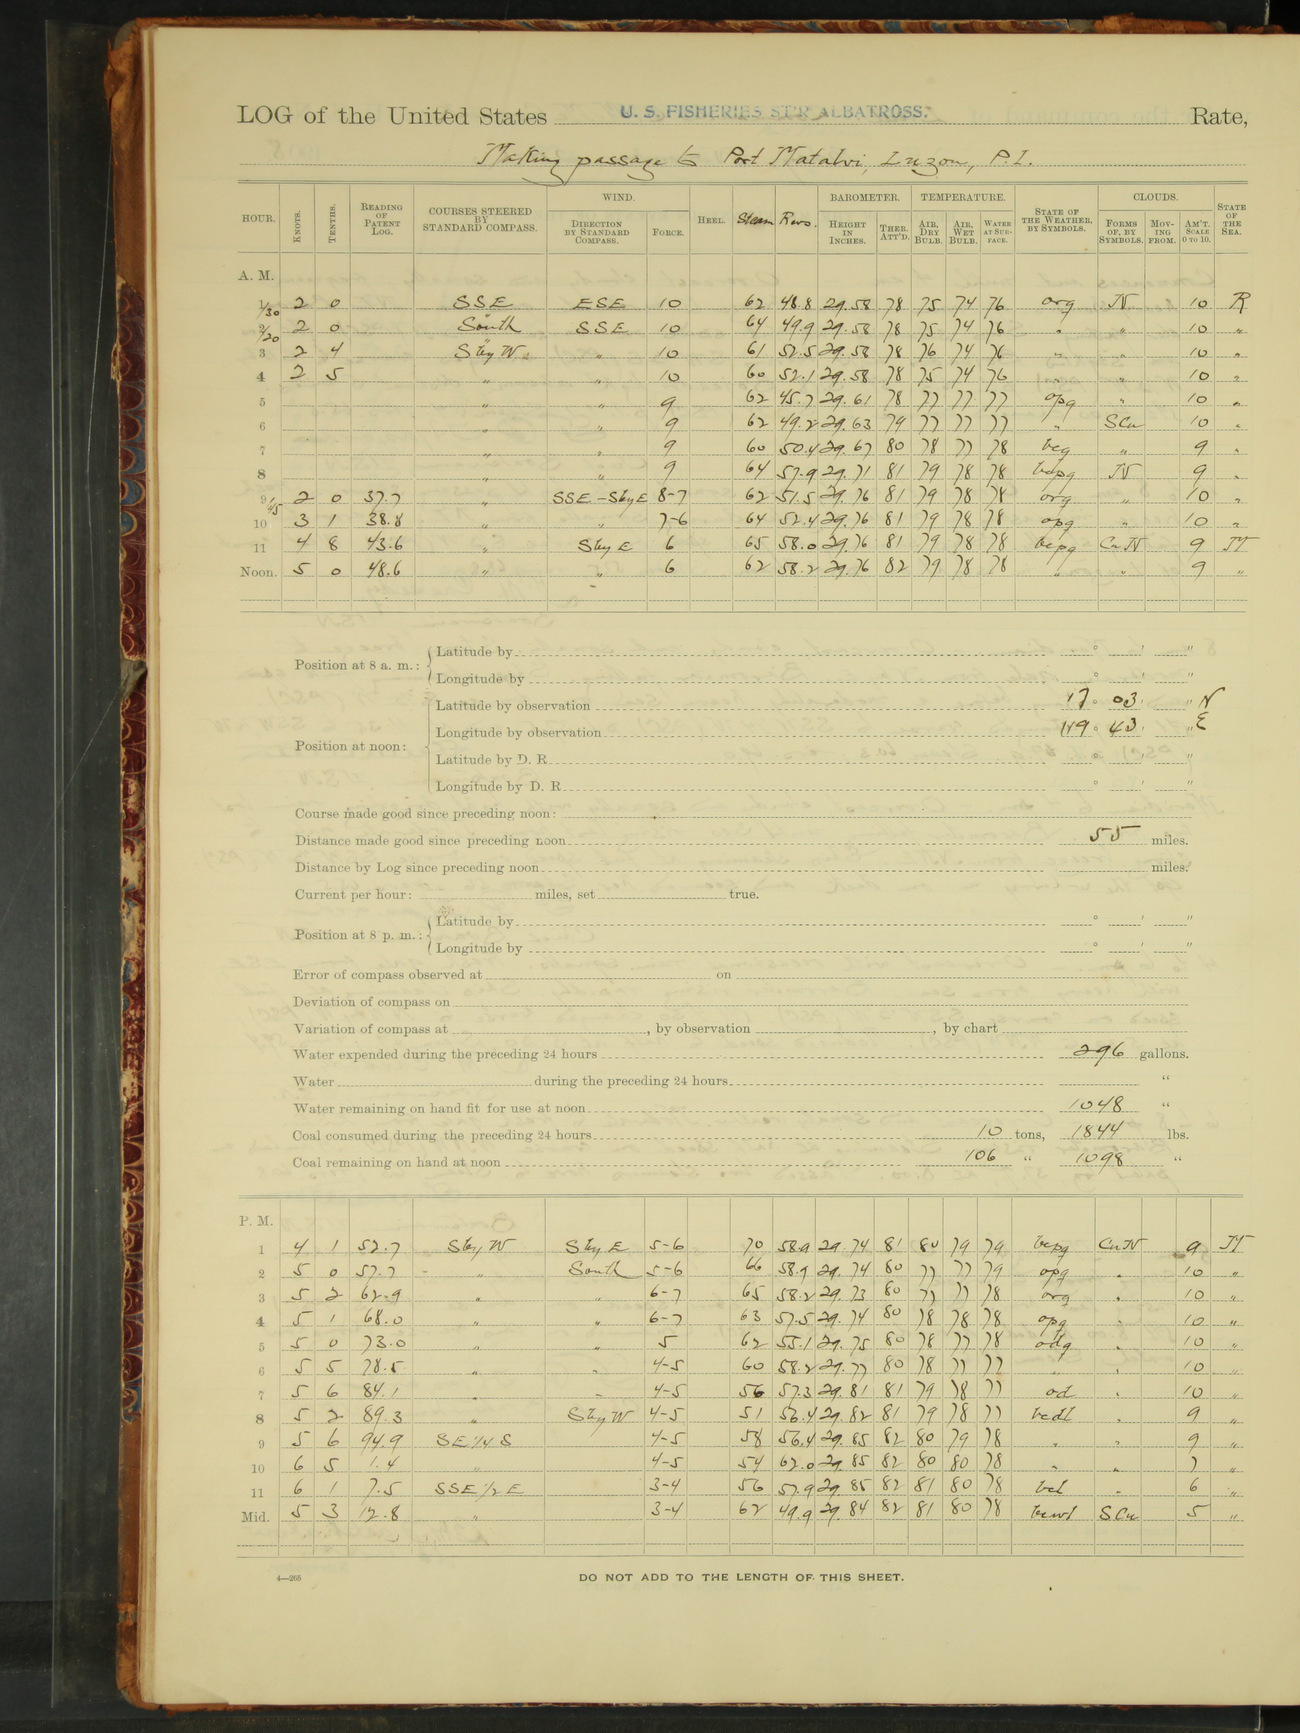 LOG of the United States U. S. FISHERIES ST'R ALBATROSS. Rate,
Making passage to Port Matalvi, Luzon, P.I.
HOUR. KNOTS. TENTHS. READING OF PATENT LOG. COURSES STEERED BY STANDARD COMPASS. WIND. DIRECTION BY STANDARD COMPASS. FORCE. HEEL. Steam Revs. BAROMETER. HEIGHT IN INCHES. THER. ATT'D. TEMPERATURE. AIR, DRY BULB. AIR, WET BULB. WATER AT SURFACE. STATE OF THE WEATHER, BY SYMBOLS. CLOUDS. FORMS OF, BY SYMBOLS. MOVING FROM. AM'T. SCALE 0 TO 10. STATE OF THE SEA.
A. M.
1/30 2 0 SSE ESE 10 62 48.8 29.58 78 75 74 76 org N 10 R
2/20 2 0 South SSE 10 64 49.9 29.58 78 75 74 76 " " 10 "
3 2 4 SbyW " 10 61 52.5 29.58 78 76 74 76 " " 10 "
4 2 5 " " 10 60 52.1 29.58 78 75 74 76 " " 10 "
5 " " 9 62 45.7 29.61 78 77 77 77 opg " 10 "
6 " " 9 62 49.2 29.63 79 77 77 77 " SCu 10 "
7 " " 9 60 50.4 29.67 80 78 77 78 bcg " 9 "
8 " " 9 64 57.9 29.71 81 79 78 78 bcpg N 9 "
9 1/45 2 0 37.7 " SSE-SbyE 8-7 62 51.5 29.76 81 79 78 78 org " 10 "
10 3 1 38.8 " " 7-6 64 52.4 29.76 81 79 78 78 opg " 10 "
11 4 8 43.6 " SbyE 6 65 58.0 29.76 81 79 78 78 bcpg CuN 9 JT
Noon. 5 0 48.6 " " 6 62 58.2 29.76 82 79 78 78 " " 9 "
Position at 8 a. m.: Latitude by ° ' "
Longitude by ° ' "
Position at noon: Latitude by observation 17° 03' " N
Longitude by observation 119° 43' " E
Latitude by D. R ° ' "
Longitude by D. R ° ' "
Course made good since preceding noon:
Distance made good since preceding noon 55 miles.
Distance by Log since preceding noon miles.
Current per hour: miles, set true.
Position at 8 p. m.: Latitude by ° ' "
Longitude by ° ' "
Error of compass observed at on
Deviation of compass on
Variation of compass at , by observation , by chart
Water expended during the preceding 24 hours 296 gallons.
Water during the preceding 24 hours "
Water remaining on hand fit for use at noon 1048 "
Coal consumed during the preceding 24 hours 10 tons, 1844 lbs.
Coal remaining on hand at noon 106 " 1098 "
P. M.
1 4 1 52.7 SbyW SbyE 5-6 70 58.9 29.74 81 80 79 79 bcpg CuN 9 JT
2 5 0 57.7 " South 5-6 66 58.9 29.74 80 77 77 79 opg " 10 "
3 5 2 62.9 " " 6-7 65 58.2 29.73 80 77 77 78 org " 10 "
4 5 1 68.0 " " 6-7 63 57.5 29.74 80 78 78 78 opg " 10 "
5 5 0 73.0 " " 5 62 55.1 29.75 80 78 77 78 odg " 10 "
6 5 5 78.5 " " 4-5 60 58.2 29.77 80 78 77 77 " " 10 "
7 5 6 84.1 " " 4-5 56 57.3 29.81 81 79 78 77 od " 10 "
8 5 2 89.3 " SbyW 4-5 51 56.4 29.82 81 79 78 77 bcdl " 9 "
9 5 6 94.9 SE1/4S 4-5 58 56.4 29.85 82 80 79 78 " " 9 "
10 6 5 1.4 " 4-5 54 62.0 29.85 82 80 80 78 " " 7 "
11 6 1 7.5 SSE1/2E 3-4 56 57.9 29.85 82 81 80 78 bcl " 6 "
Mid. 5 3 12.8 " 3-4 62 49.9 29.84 82 81 80 78 SCu 5 "
4—265
DO NOT ADD TO THE LENGTH OF THIS SHEET.